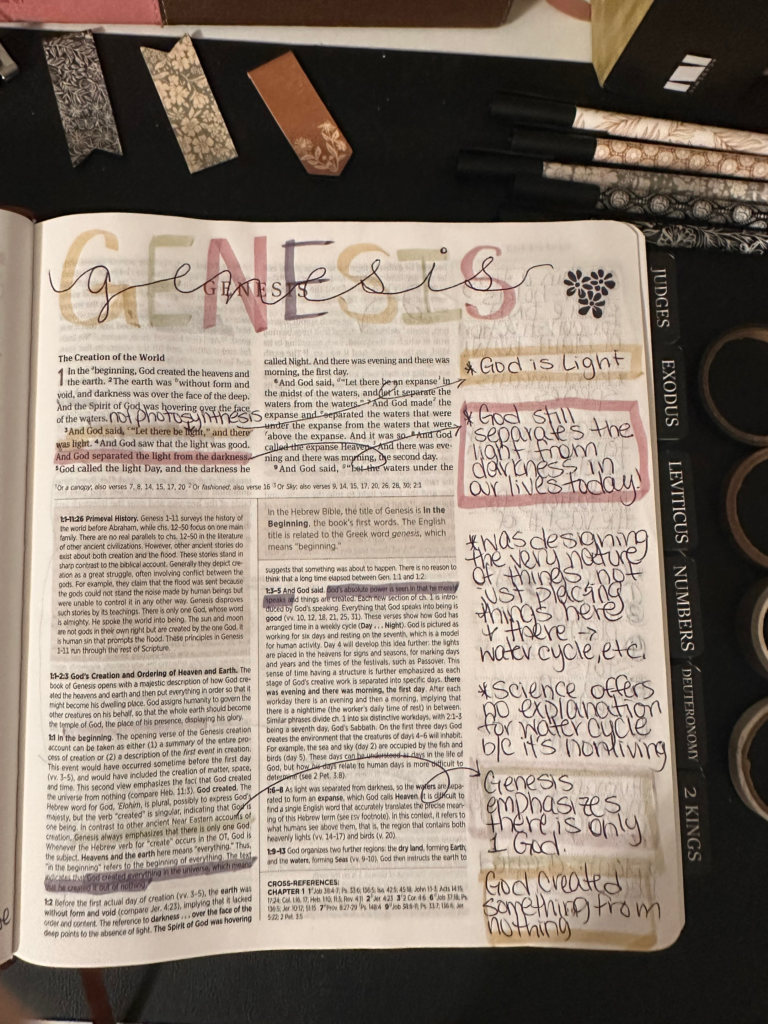 GENESIS
genesis
GENESIS
The Creation of the World
1 In the beginning, God created the heavens and
the earth. 2 The earth was without form and
void, and darkness was over the face of the deep.
And the Spirit of God was hovering over the face
of the waters.
not photosynthesis
3 And God said, "Let there be light," and there
was light. 4 And God saw that the light was good.
And God separated the light from the darkness.
5 God called the light Day, and the darkness he
called Night. And there was evening and there was
morning, the first day.
6 And God said, "Let there be an expanse 1 in
the midst of the waters, and let it separate the
waters from the waters." 7 And God made 2 the
expanse and separated the waters that were
under the expanse from the waters that were
above the expanse. And it was so. 8 And God
called the expanse Heaven. 3 And there was eve-
ning and there was morning, the second day.
9 And God said, "Let the waters under the
1 Or a canopy; also verses 7, 8, 14, 15, 17, 20 2 Or fashioned; also verse 16 3 Or Sky; also verses 9, 14, 15, 17, 20, 26, 28, 30; 2:1
1:1–11:26 Primeval History. Genesis 1–11 surveys the history of
the world before Abraham, while chs. 12–50 focus on one main
family. There are no real parallels to chs. 12–50 in the literature
of other ancient civilizations. However, other ancient stories do
exist about both creation and the flood. These stories stand in
sharp contrast to the biblical account. Generally they depict cre-
ation as a great struggle, often involving conflict between the
gods. For example, they claim that the flood was sent because
the gods could not stand the noise made by human beings but
were unable to control it in any other way. Genesis disproves
such stories by its teachings. There is only one God, whose word
is almighty. He spoke the world into being. The sun and moon
are not gods in their own right but are created by the one God. It
is human sin that prompts the flood. These principles in Genesis
1–11 run through the rest of Scripture.
1:1–2:3 God's Creation and Ordering of Heaven and Earth. The
book of Genesis opens with a majestic description of how God cre-
ated the heavens and earth and then put everything in order so that it
might become his dwelling place. God assigns humanity to govern the
other creatures on his behalf, so that the whole earth should become
the temple of God, the place of his presence, displaying his glory.
1:1 In the beginning. The opening verse of the Genesis creation
account can be taken as either (1) a summary of the entire pro-
cess of creation or (2) a description of the first event in creation.
This event would have occurred sometime before the first day
(vv. 3–5), and would have included the creation of matter, space,
and time. This second view emphasizes the fact that God created
the universe from nothing (compare Heb. 11:3). God created. The
Hebrew word for God, 'Elohim, is plural, possibly to express God's
majesty, but the verb "created" is singular, indicating that God is
one being. In contrast to other ancient Near Eastern accounts of
creation, Genesis always emphasizes that there is only one God.
Whenever the Hebrew verb for "create" occurs in the OT, God is
the subject. Heavens and the earth here means "everything." Thus,
"in the beginning" refers to the beginning of everything. The text
indicates that God created everything in the universe, which means
that he created it out of nothing.
1:2 Before the first actual day of creation (vv. 3–5), the earth was
without form and void (compare Jer. 4:23), implying that it lacked
order and content. The reference to darkness . . . over the face of the
deep points to the absence of light. The Spirit of God was hovering
In the Hebrew Bible, the title of Genesis is In the
Beginning, the book's first words. The English
title is related to the Greek word genesis, which
means "beginning."
suggests that something was about to happen. There is no reason to
think that a long time elapsed between Gen. 1:1 and 1:2.
1:3–5 And God said. God's absolute power is seen in that he merely
speaks and things are created. Each new section of ch. 1 is intro-
duced by God's speaking. Everything that God speaks into being is
good (vv. 10, 12, 18, 21, 25, 31). These verses show how God has
arranged time in a weekly cycle (Day . . . Night). God is pictured as
working for six days and resting on the seventh, which is a model
for human activity. Day 4 will develop this idea further: the lights
are placed in the heavens for signs and seasons, for marking days
and years and the times of the festivals, such as Passover. This
sense of time having a structure is further emphasized as each
stage of God's creative work is separated into specific days. there
was evening and there was morning, the first day. After each
workday there is an evening and then a morning, implying that
there is a nighttime (the worker's daily time of rest) in between.
Similar phrases divide ch. 1 into six distinctive workdays, with 2:1–3
being a seventh day, God's Sabbath. On the first three days God
creates the environment that the creatures of days 4–6 will inhabit.
For example, the sea and sky (day 2) are occupied by the fish and
birds (day 5). These days can be understood as days in the life of
God, but how his days relate to human days is more difficult to
determine (see 2 Pet. 3:8).
1:6–8 As light was separated from darkness, so the waters are sepa-
rated to form an expanse, which God calls Heaven. It is difficult to
find a single English word that accurately translates the precise mean-
ing of this Hebrew term (see ESV footnote). In this context, it refers to
what humans see above them, that is, the region that contains both
heavenly lights (vv. 14–17) and birds (v. 20).
1:9–13 God organizes two further regions: the dry land, forming Earth,
and the waters, forming Seas (vv. 9–10). God then instructs the earth to
CROSS-REFERENCES:
CHAPTER 1
* God is Light
* God still
separates the
light from
darkness in
our lives today!
* was designing
the very nature
of things, not
just placing
things here
+ there →
water cycle, etc.
* Science offers
no explanation
for water cycle
b/c it's nonliving
Genesis
emphasizes
there is only
1 God.
God created
something from
nothing
JUDGES
EXODUS
LEVITICUS
NUMBERS
DEUTERONOMY
2 KINGS